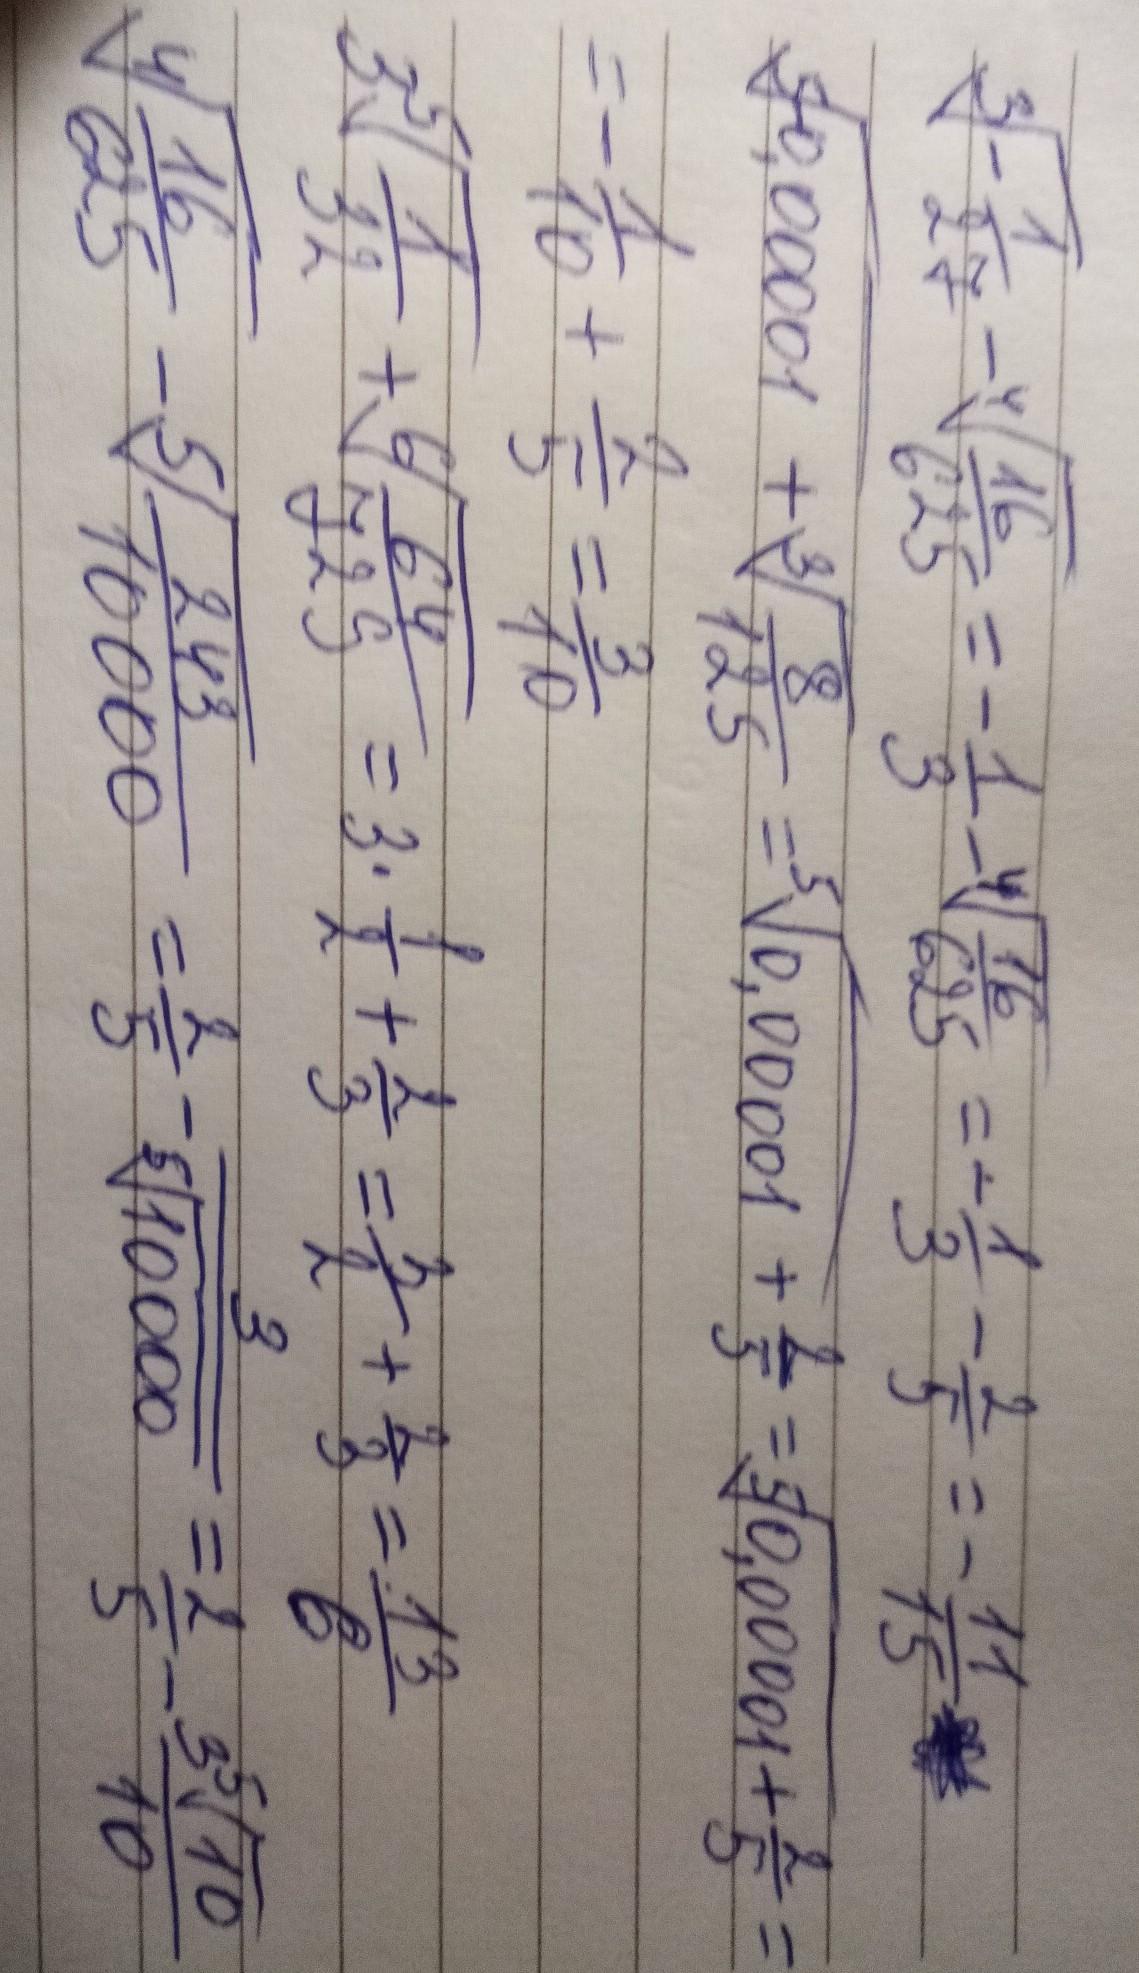 ∛(-1/27) - ∜(16/625) = -1/3 - ∜(16/625) = -1/3 - 2/5 = -11/15
⁵√0,00001 + ∛(8/125) = ⁵√0,00001 + 2/5 = ⁵√0,00001 + 2/5 =
= -1/10 + 2/5 = 3/10
3⁵√(1/32) + ⁶√(64/725) = 3·1/2 + 2/3 = 3/2 + 2/3 = 13/6
∜(16/625) - ⁵√(243/10000) = 2/5 - 3/⁵√10000 = 2/5 - 3⁵√10/10